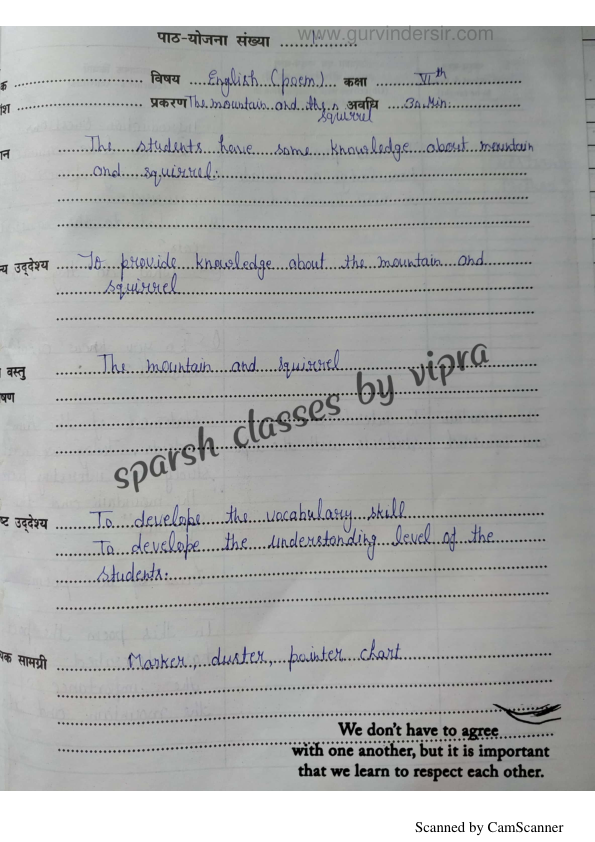 www.gurvindersir.com
पाठ-योजना संख्या ........1..........
क ................ विषय ... English (poem) ... कक्षा ...... VIth ......
श ................ प्रकरण The mountain and the squirrel अवधि ... 30 Min. ......
ान ...... The students have some knowledge about mountain
and squirrel.
्य उद्देश्य ...... To provide knowledge about the mountain and
squirrel
वस्तु ...... The mountain and squirrel
षण
sparsh classes by vipra
ष्ट उद्देश्य ...... To develope the vocabulary skill
To develope the understanding level of the
students.
क सामग्री ...... Marker, duster, pointer chart
We don't have to agree
with one another, but it is important
that we learn to respect each other.
Scanned by CamScanner